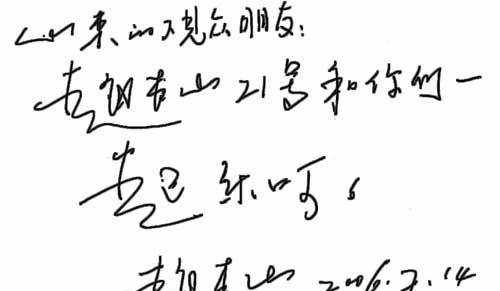 山东的观众朋友:
赵本山21号和你们一
起乐呵。
赵本山 2006.7.14